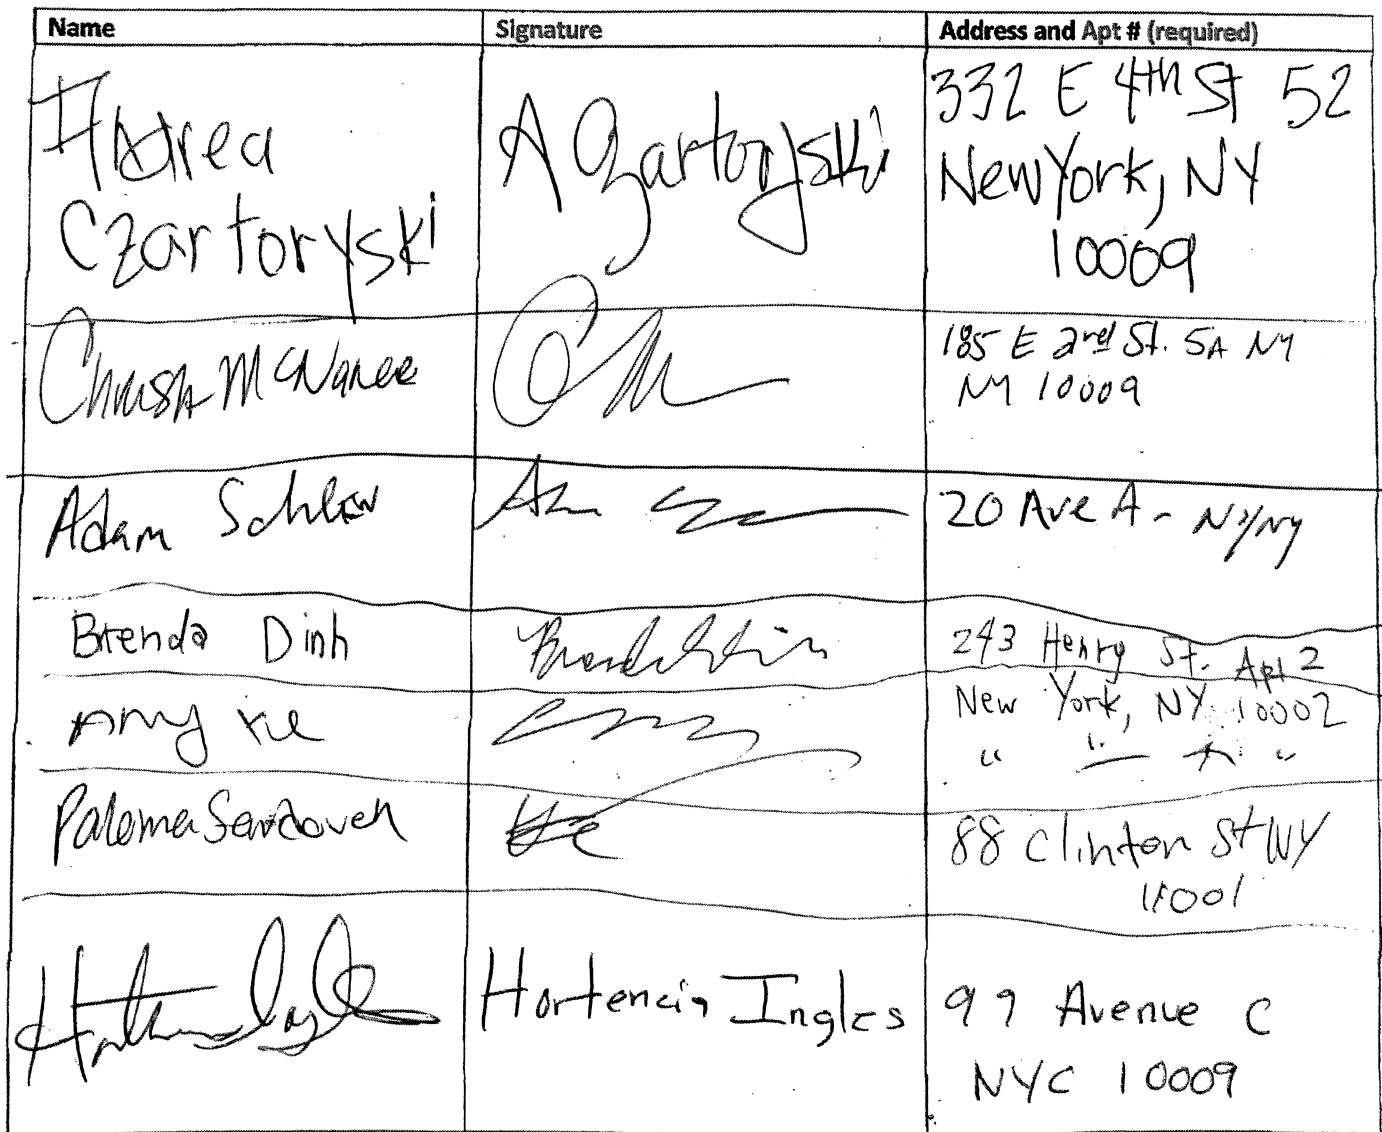 Name Signature Address and Apt # (required)
Andrea
Czartoryski
A Czartoryski
332 E 4th St 52
New York, NY
10009
McNamee
185 E 2nd St. 5A NY
NY 10009
Adam
20 Ave A - NY/NY
Brenda Dinh
243 Henry St. Apt 2
New York, NY 10002
Amy Xie
" " " "
Paloma
88 Clinton St NY
11001
Hortencia Ingles
99 Avenue C
NYC 10009